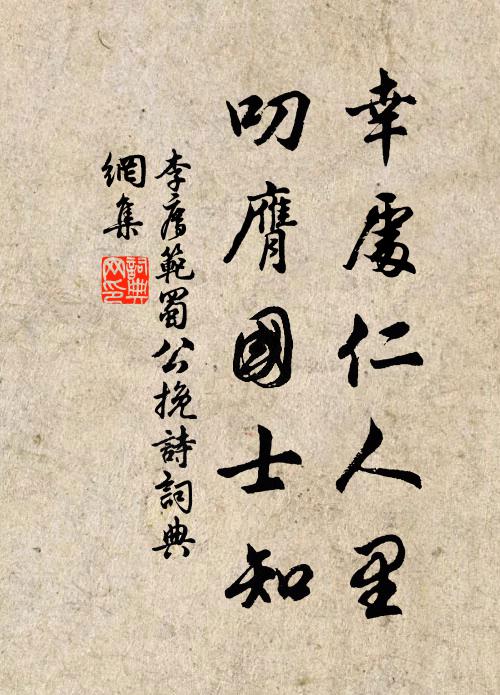 幸處仁人里
叨膺國士知
李廌範蜀公挽詩詞典
網集
詞典
网印